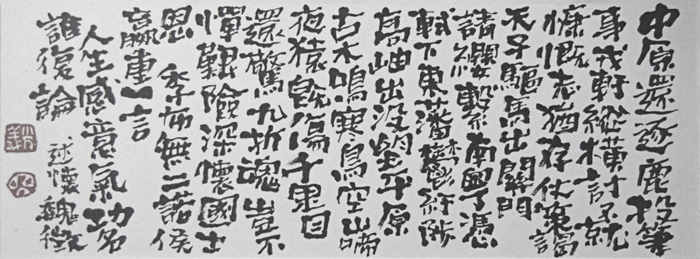 中原還逐鹿投筆
事戎軒縱橫計不就
慷慨志猶存仗策謁
天子驅馬出關門
請纓繫南粤憑
軾下東藩鬱紆陟
高岫出沒望平原
古木鳴寒鳥空山啼
夜猿既傷千里目
還驚九折魂豈不
憚艱險深懷國士
恩季布無二諾侯
嬴重一言
人生感意氣功名
誰復論 述懷魏徵